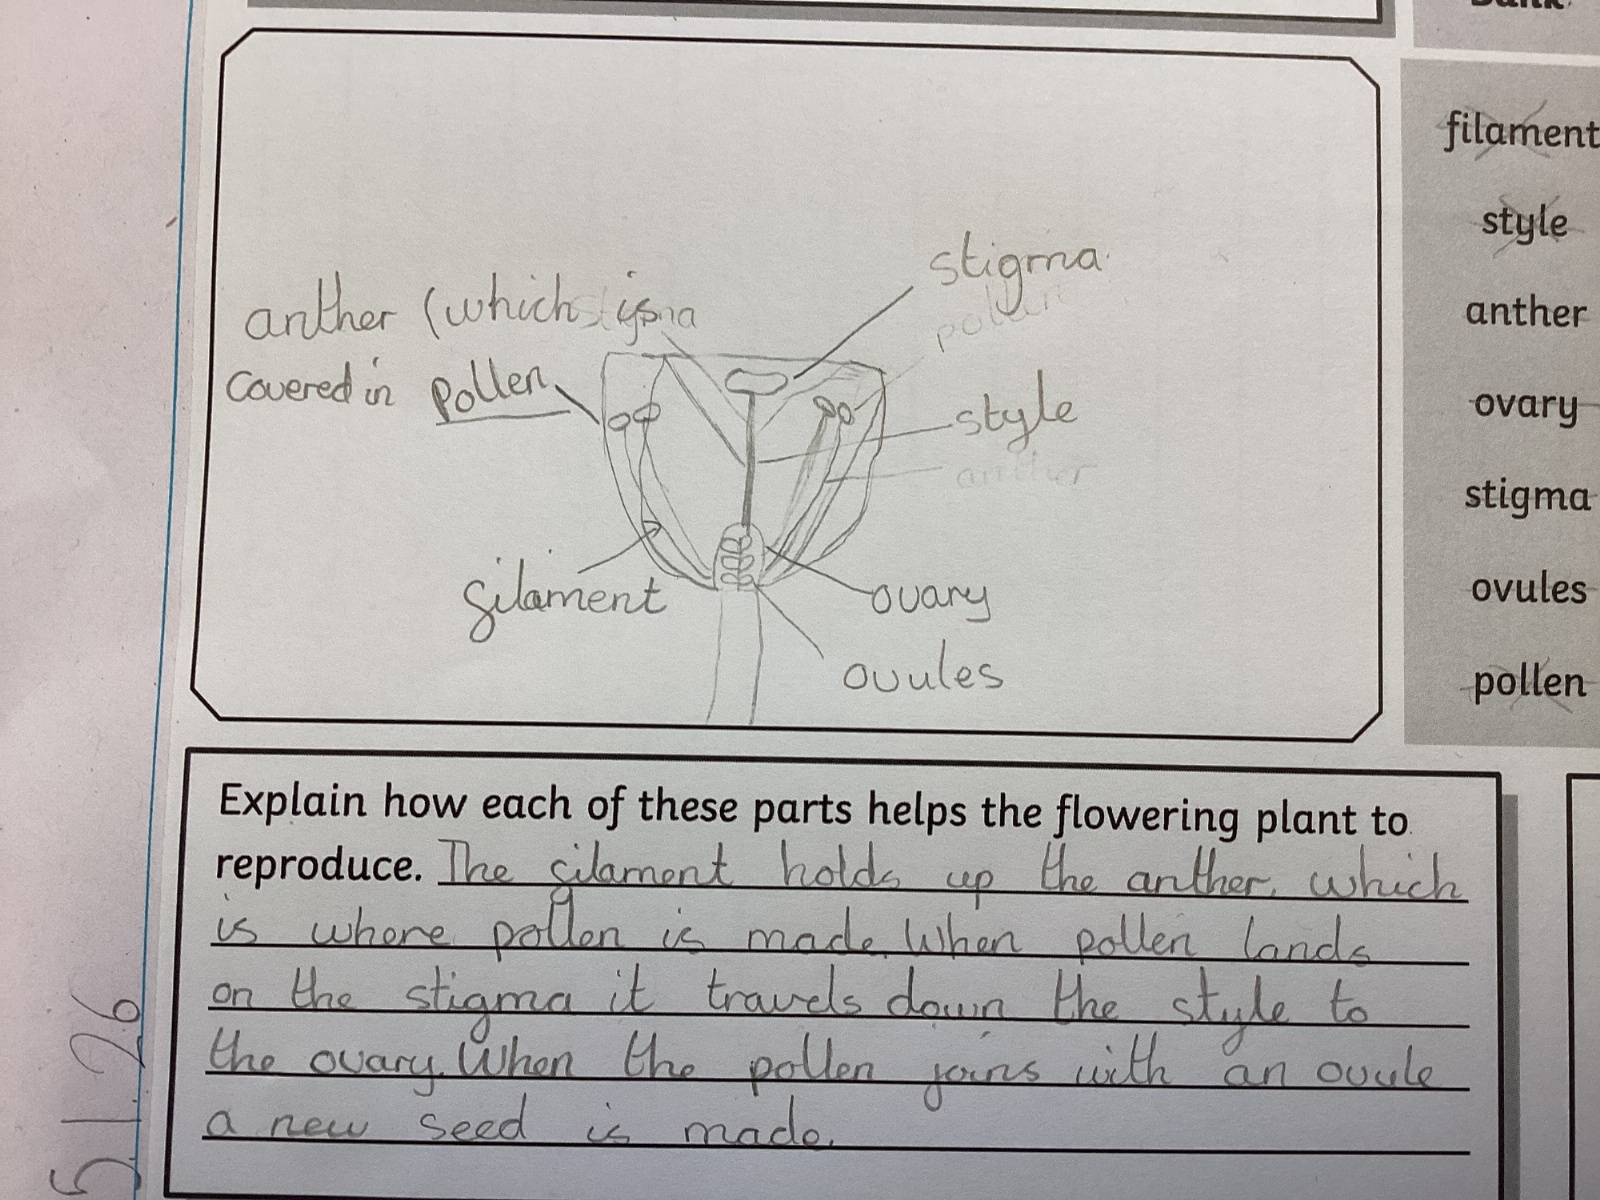 filament
style
anther
ovary
stigma
ovules
pollen
stigma
pollen
anther (which is
covered in pollen
style
anther
filament
ovary
ovules
Explain how each of these parts helps the flowering plant to
reproduce. The filament holds up the anther, which
is where pollen is made. When pollen lands
on the stigma it travels down the style to
the ovary. When the pollen joins with an ovule
a new seed is made.
5.1.26